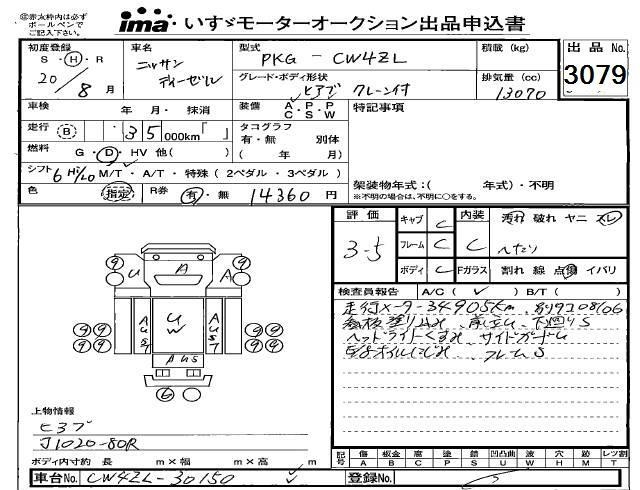 ※赤太枠内は必ずボールペンでご記入下さい。
ima いすゞモーターオークション出品申込書
初度登録 S・H・R 20/8月
車名 ニッサン ディーゼル
型式 PKG-CW4ZL
積載(kg)
出品No. 3079
グレード・ボディ形状 ヒアブ クレーン付
排気量(cc) 13070
車検 年 月・ 抹消
装備 A・P・P C・S・W
特記事項
走行 B 35 000km「 」
タコグラフ 有・無 別体 ( 年 月)
燃料 G・D・HV 他( )
シフト 6 Hi/Lo M/T・A/T・特殊(2ペダル・3ペダル)
色 指定 R券 有・無 14360円
架装物年式:( 年式)・不明
※不明の場合は、不明に○をする。
評価 3-5
キャブ C
フレーム C
ボディ C
内装 C
汚れ 破れ ヤニ スレ
へたり
Fガラス 割れ 線 点傷 イバリ
検査員報告 A/C(✓) B/T( )
走行メーター34905km、
看板塗り込み 下廻りS
ヘッドライトくすみ サイドガードU
オイルにじみ フレームS
9 U A A 9
9 9 AUST U W AUST 9 9
9 9 AUS 9 9
6
上物情報
ヒアブ
J1020-80R
ボディ内寸約 長 m×幅 m×高 m
記号 傷A 板金B 腐C 塗P 錆S 凹凸曲U 波W 穴H 跡M レツ割T
車台No. CW4ZL-30150
登録No.